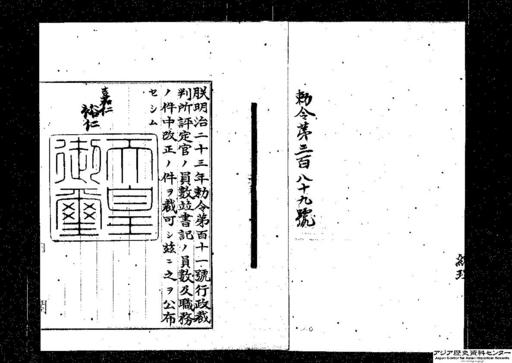 勅令第三百八十九號
朕明治二十三年勅令第百十一號行政裁
判所評定官ノ員數竝書記ノ員數及職務
ノ件中改正ノ件ヲ裁可シ玆ニ之ヲ公布
セシム
嘉仁
裕仁
天皇
御璽
アジア歴史資料センター
Japan Center for Asian Historical Records